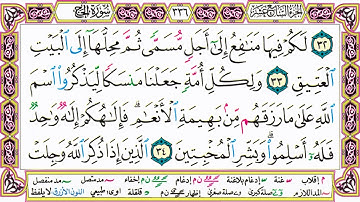 الجزء السابع عشر ٣٣٦ سورة الحج
٣٢ لَكُمْ فِيهَا مَنَافِعُ إِلَىٰ أَجَلٍ مُّسَمًّى ثُمَّ مَحِلُّهَا إِلَى الْبَيْتِ
الْعَتِيقِ ٣٣ وَلِكُلِّ أُمَّةٍ جَعَلْنَا مَنسَكًا لِّيَذْكُرُوا اسْمَ
اللَّهِ عَلَىٰ مَا رَزَقَهُم مِّن بَهِيمَةِ الْأَنْعَامِ فَإِلَٰهُكُمْ إِلَٰهٌ وَاحِدٌ
فَلَهُ أَسْلِمُوا وَبَشِّرِ الْمُخْبِتِينَ ٣٤ الَّذِينَ إِذَا ذُكِرَ اللَّهُ وَجِلَتْ